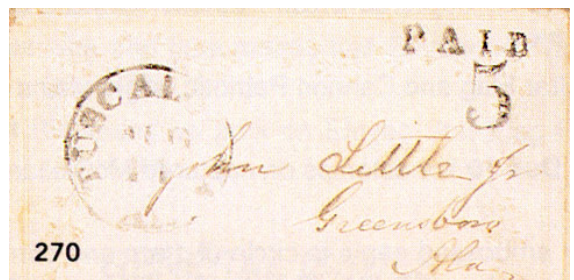 PAID
5
TUSCAL
John Little Jr
Greensboro
Ala
270